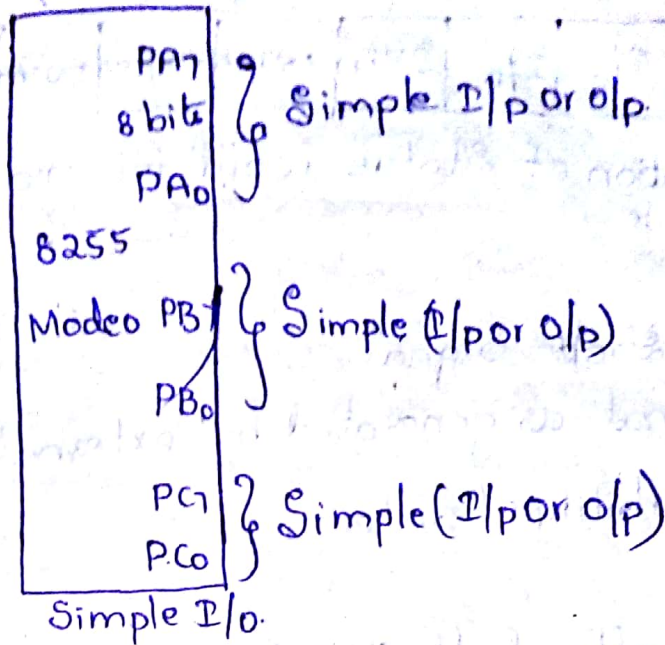 PA7
8 bits
PA0
Simple I/p or o/p.
8255
Mode0 PB7
PB0
Simple (I/p or o/p)
PC7
PC0
Simple (I/p or o/p)
Simple I/o.